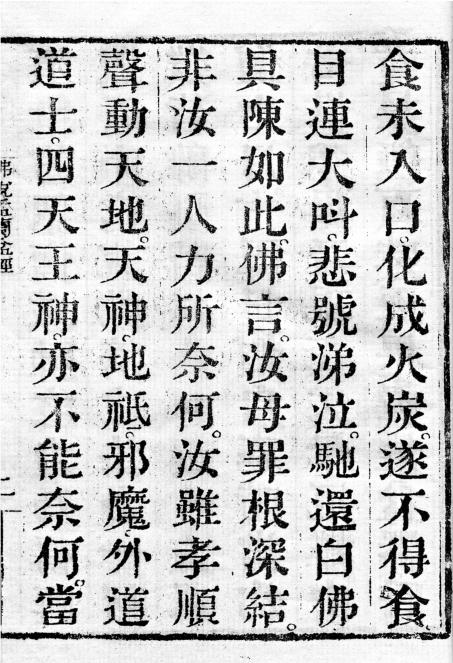 食未入口。化成火炭。遂不得食。
目連大呌。悲號涕泣。馳還白佛
具陳如此。佛言。汝母罪根深結。
非汝一人力所奈何。汝雖孝順
聲動天地。天神。地祇。邪魔。外道
道士。四天王神。亦不能奈何。當
佛說盂蘭盆經